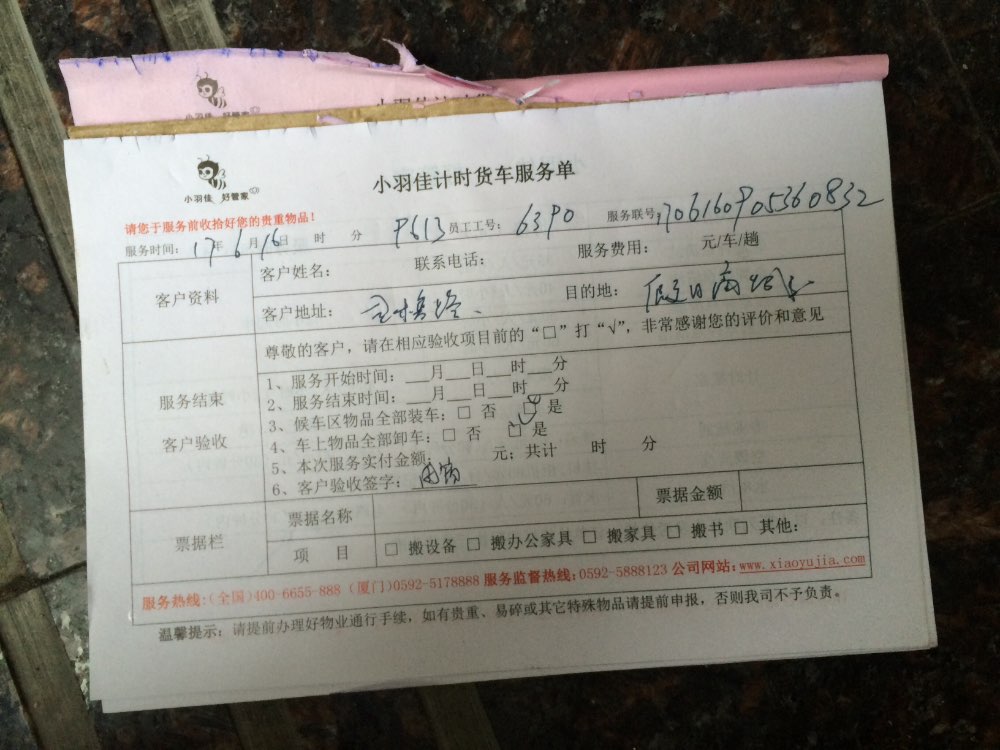 小羽佳 好管家
小羽佳 好管家
小羽佳计时货车服务单
请您于服务前收拾好您的贵重物品!
服务时间: 17年6月16日 时 分 P613 员工工号: 6390 服务联号: 170616090536083​2
客户资料
客户姓名: 联系电话: 服务费用: 元/车/趟
客户地址: 目的地: 假日商城
服务结束
客户验收
尊敬的客户，请在相应验收项目前的“□”打“√”，非常感谢您的评价和意见
1、服务开始时间: ___月___日___时___分
2、服务结束时间: ___月___日___时___分
3、候车区物品全部装车: □ 否 □ 是
4、车上物品全部卸车: □ 否 □ 是
5、本次服务实付金额: 元; 共计 时 分
6、客户验收签字:
票据栏
票据名称 票据金额
项 目 □ 搬设备 □ 搬办公家具 □ 搬家具 □ 搬书 □ 其他:
服务热线:(全国)400-6655-888 (厦门)0592-5178888 服务监督热线:0592-5888123 公司网站:www.xiaoyujia.com
温馨提示: 请提前办理好物业通行手续，如有贵重、易碎或其它特殊物品请提前申报，否则我司不予负责。